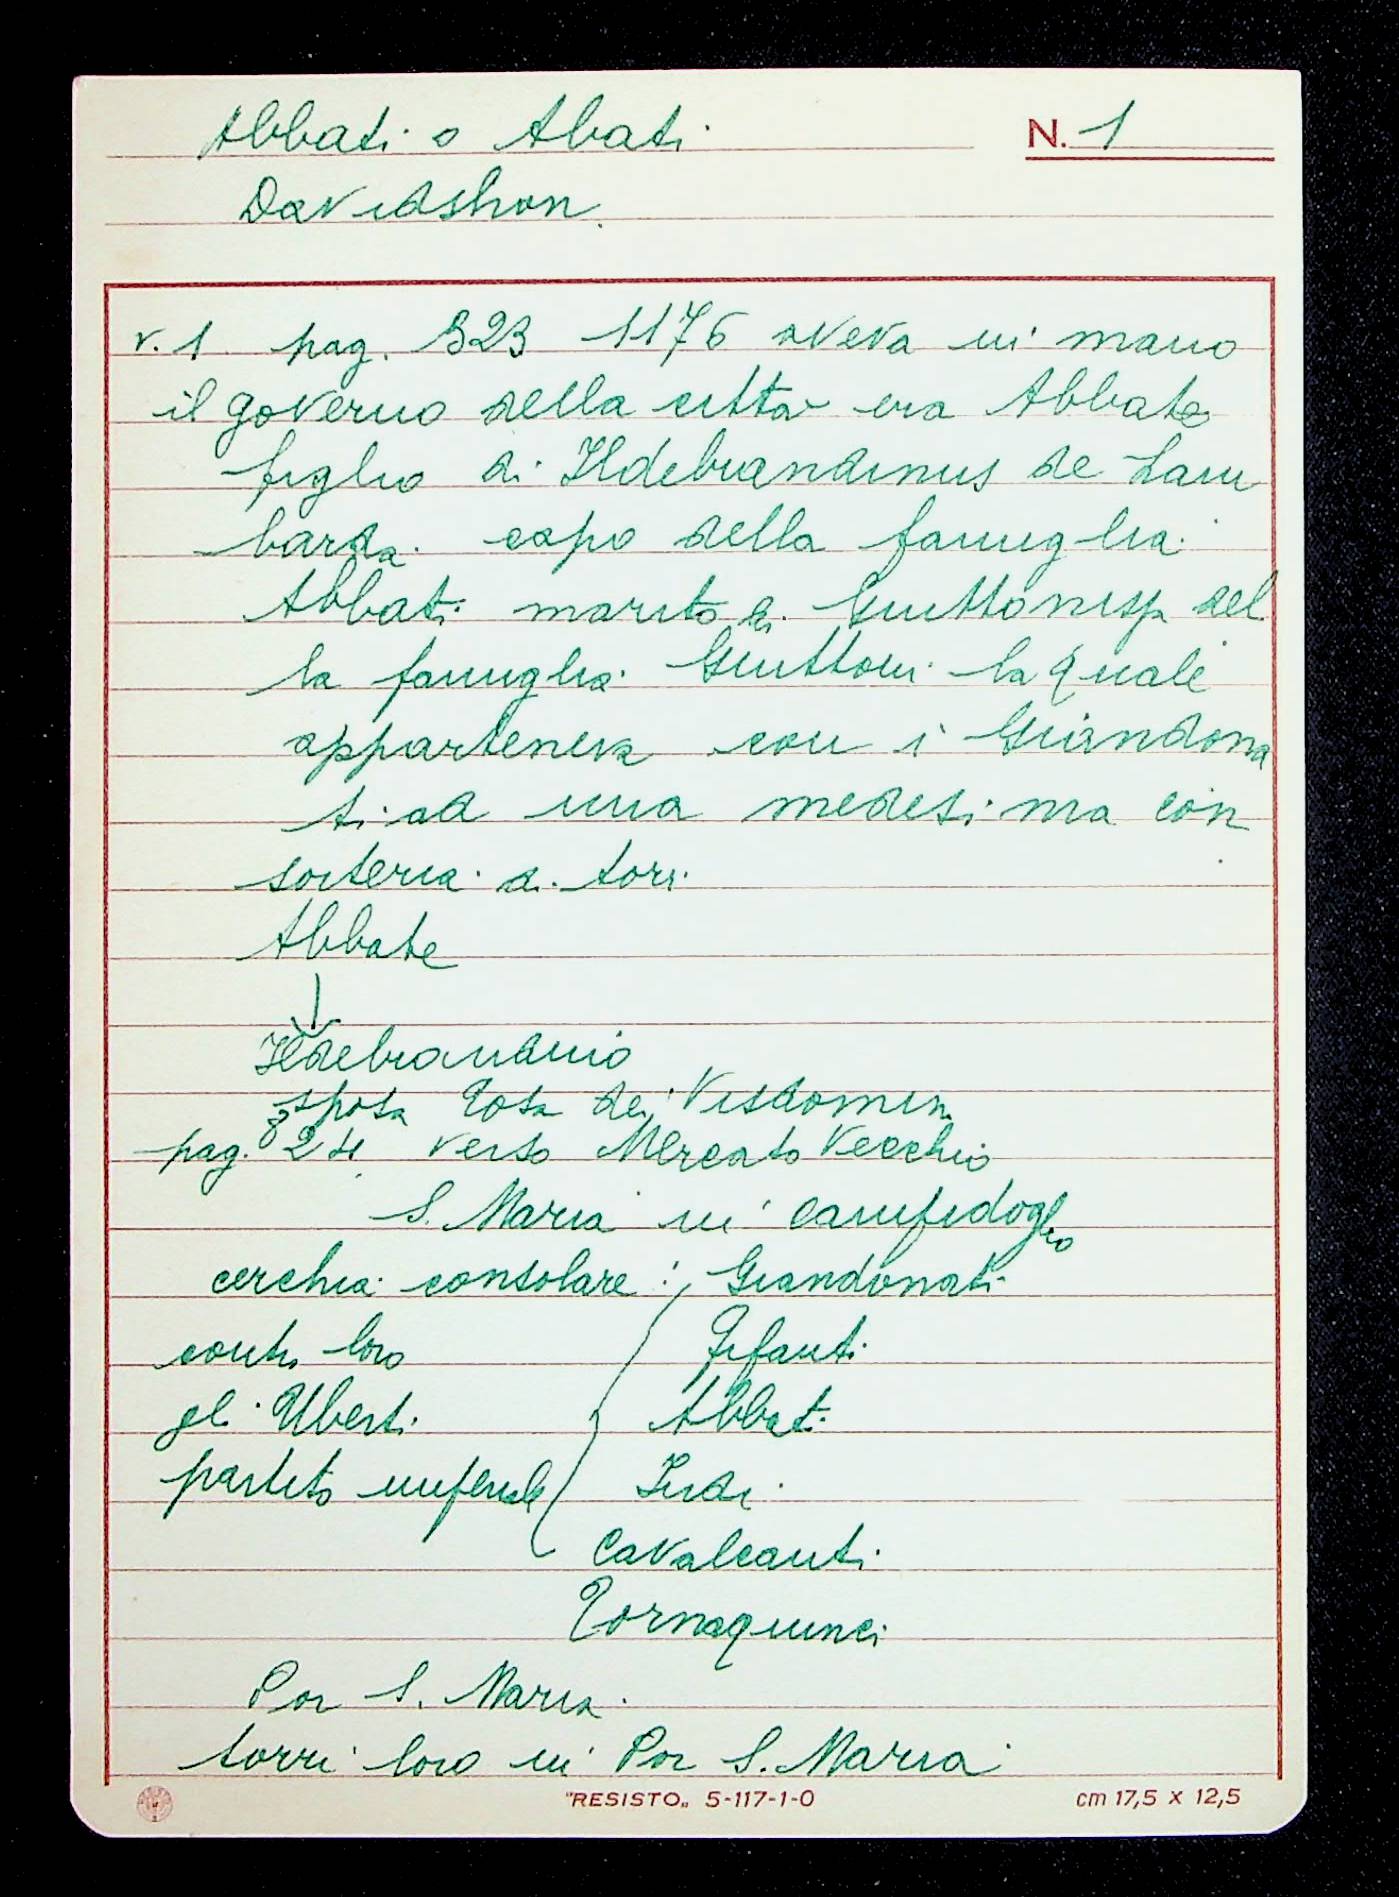 Abbati o Abati
N. 1
Davidshon
v. 1 pag. 823 1176 aveva in mano
il governo della città era Abbate
figlio di Ildebrandinus de Lam
barda capo della famiglia
Abbati marito di del
la famiglia Guittoni la quale
apparteneva con i Giandona
ti ad una medesima con
sorteria di torri
Abbate
↓
Ildebrandino
sposa Tosa dei Visdomin
pag. 824 verso Mercato Vecchio
S. Maria in Campidoglio
cerchia consolare : Giandonati
contro loro Fifanti
gli Uberti Abbati
partito Iudi
Cavalcanti
Tornaquinci
Por S. Maria
torri loro in Por S. Maria
"RESISTO" 5-117-1-0
cm 17,5 x 12,5